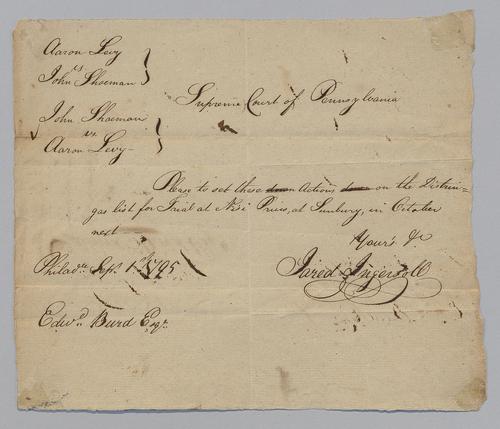 Aaron Levy
vs
John Shoeman
Supreme Court of Pennsylvania
John Shoeman
vs.
Aaron Levy-
Please to set these down Actions down on the Distrin=
gas list for Trial at Nisi Prius, at Sunbury, in October
next
Your's &c
Philad.a Sept. 1st 1795
Jared Ingersoll
Edw.d Burd Esqr.